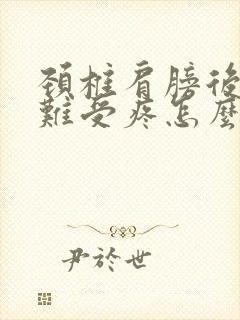 頸椎肩膀後
難受疼怎麼
尹於世